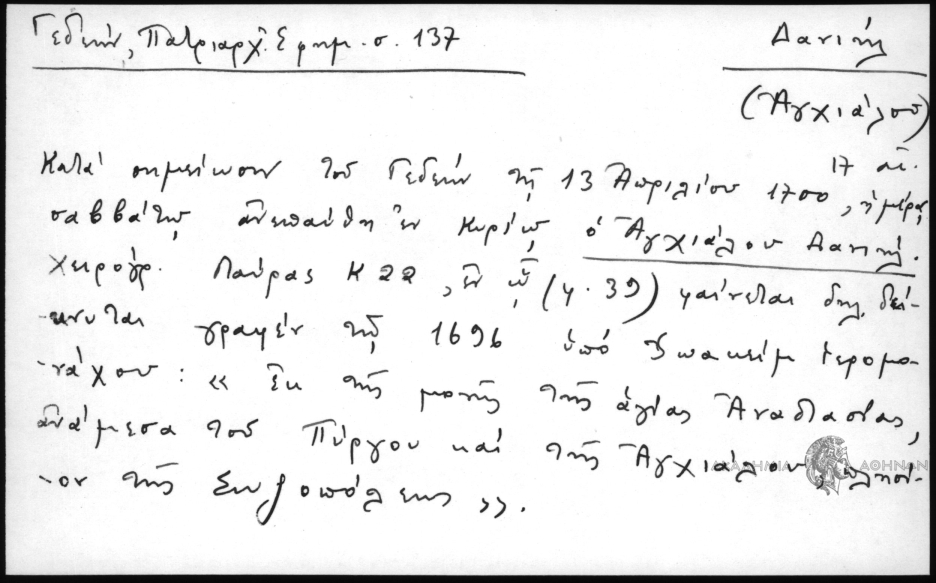 Γεδεών, Πατριαρχ. Εφημ. σ. 137
Δανιήλ
(Ἀγχιάλου)
17 αἰ.
Κατά σημείωσιν τοῦ Γεδεών τῇ 13 Ἀπριλίου 1700, ἡμέρᾳ
σαββάτῳ ἀνεπαύθη ἐν Κυρίῳ ὁ Ἀγχιάλου Δανιήλ.
Χειρόγρ. Λαύρας Κ 22, ἐν ᾧ (φ. 39) φαίνεται δηλ. δεί-
-κνυται γραφέν τῷ 1696 ὑπό Ἰωακείμ ἱερομο-
-νάχου: « Ἐκ τῆς μονῆς τῆς ἁγίας Ἀναστασίας,
ἀνάμεσα τοῦ Πύργου καί τῆς Ἀγχιάλου, πλησί-
-ον τῆς Σωζοπόλεως ».
ΑΚΑΔΗΜΙΑ ΑΘΗΝΩΝ